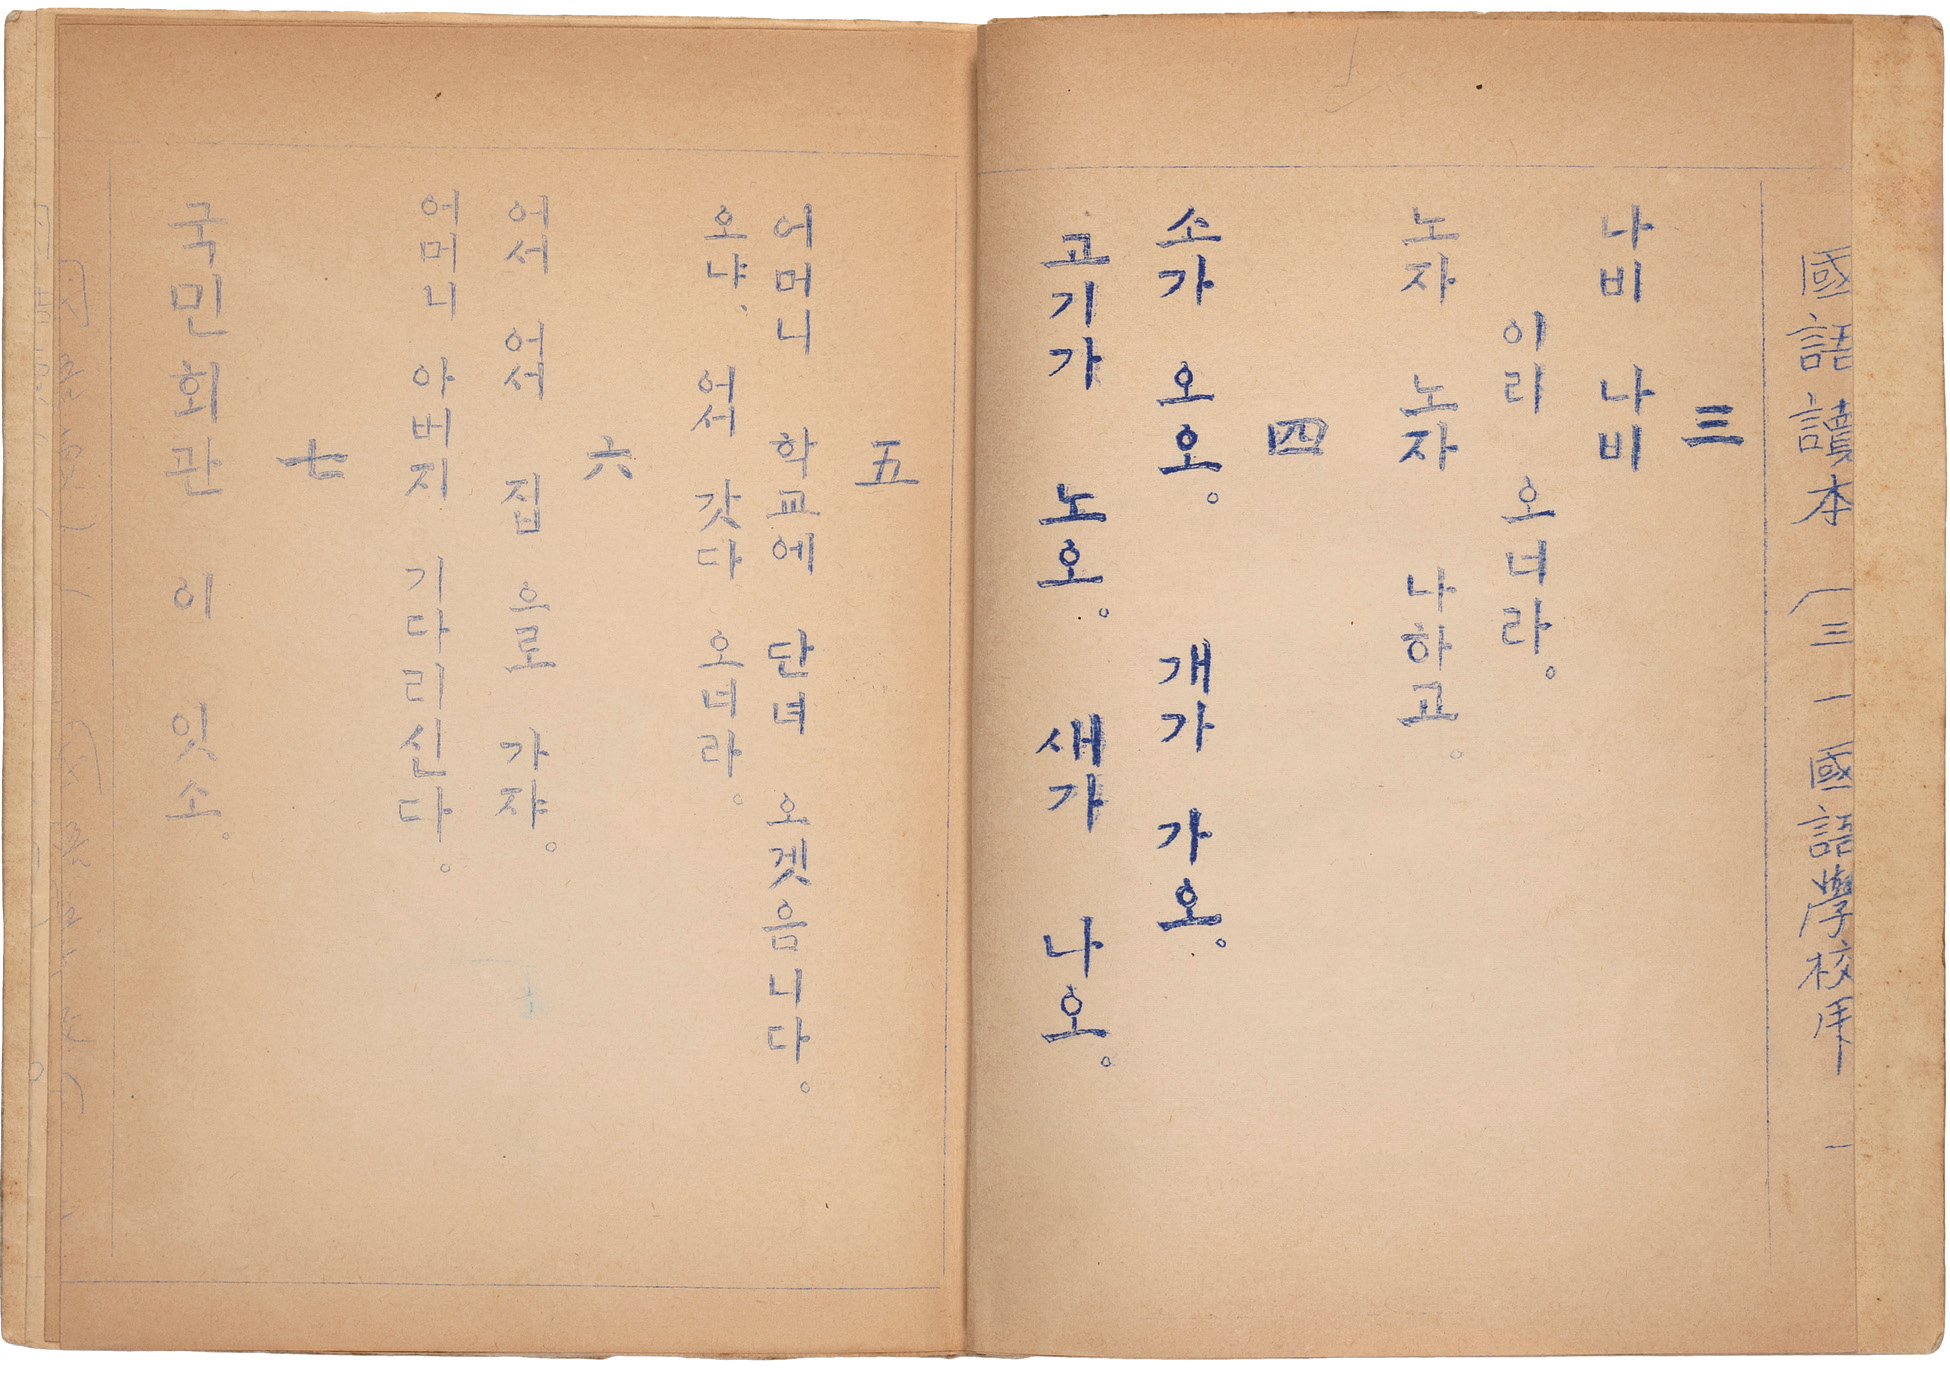 國語讀本 (三一國語學校用 一
三
나비 나비
이리 오너라。
노자 노자 나하고。
四
소가 오오。 개가 가오。
고기가 노오。 새가 나오。
五
어머니 학교에 단녀 오겟음니다。
오냐、 어서 갓다 오녀라。
六
어서 어서 집 으로 가쟈。
어머니 아버지 기다리신다。
七
국민회관 이 잇소。